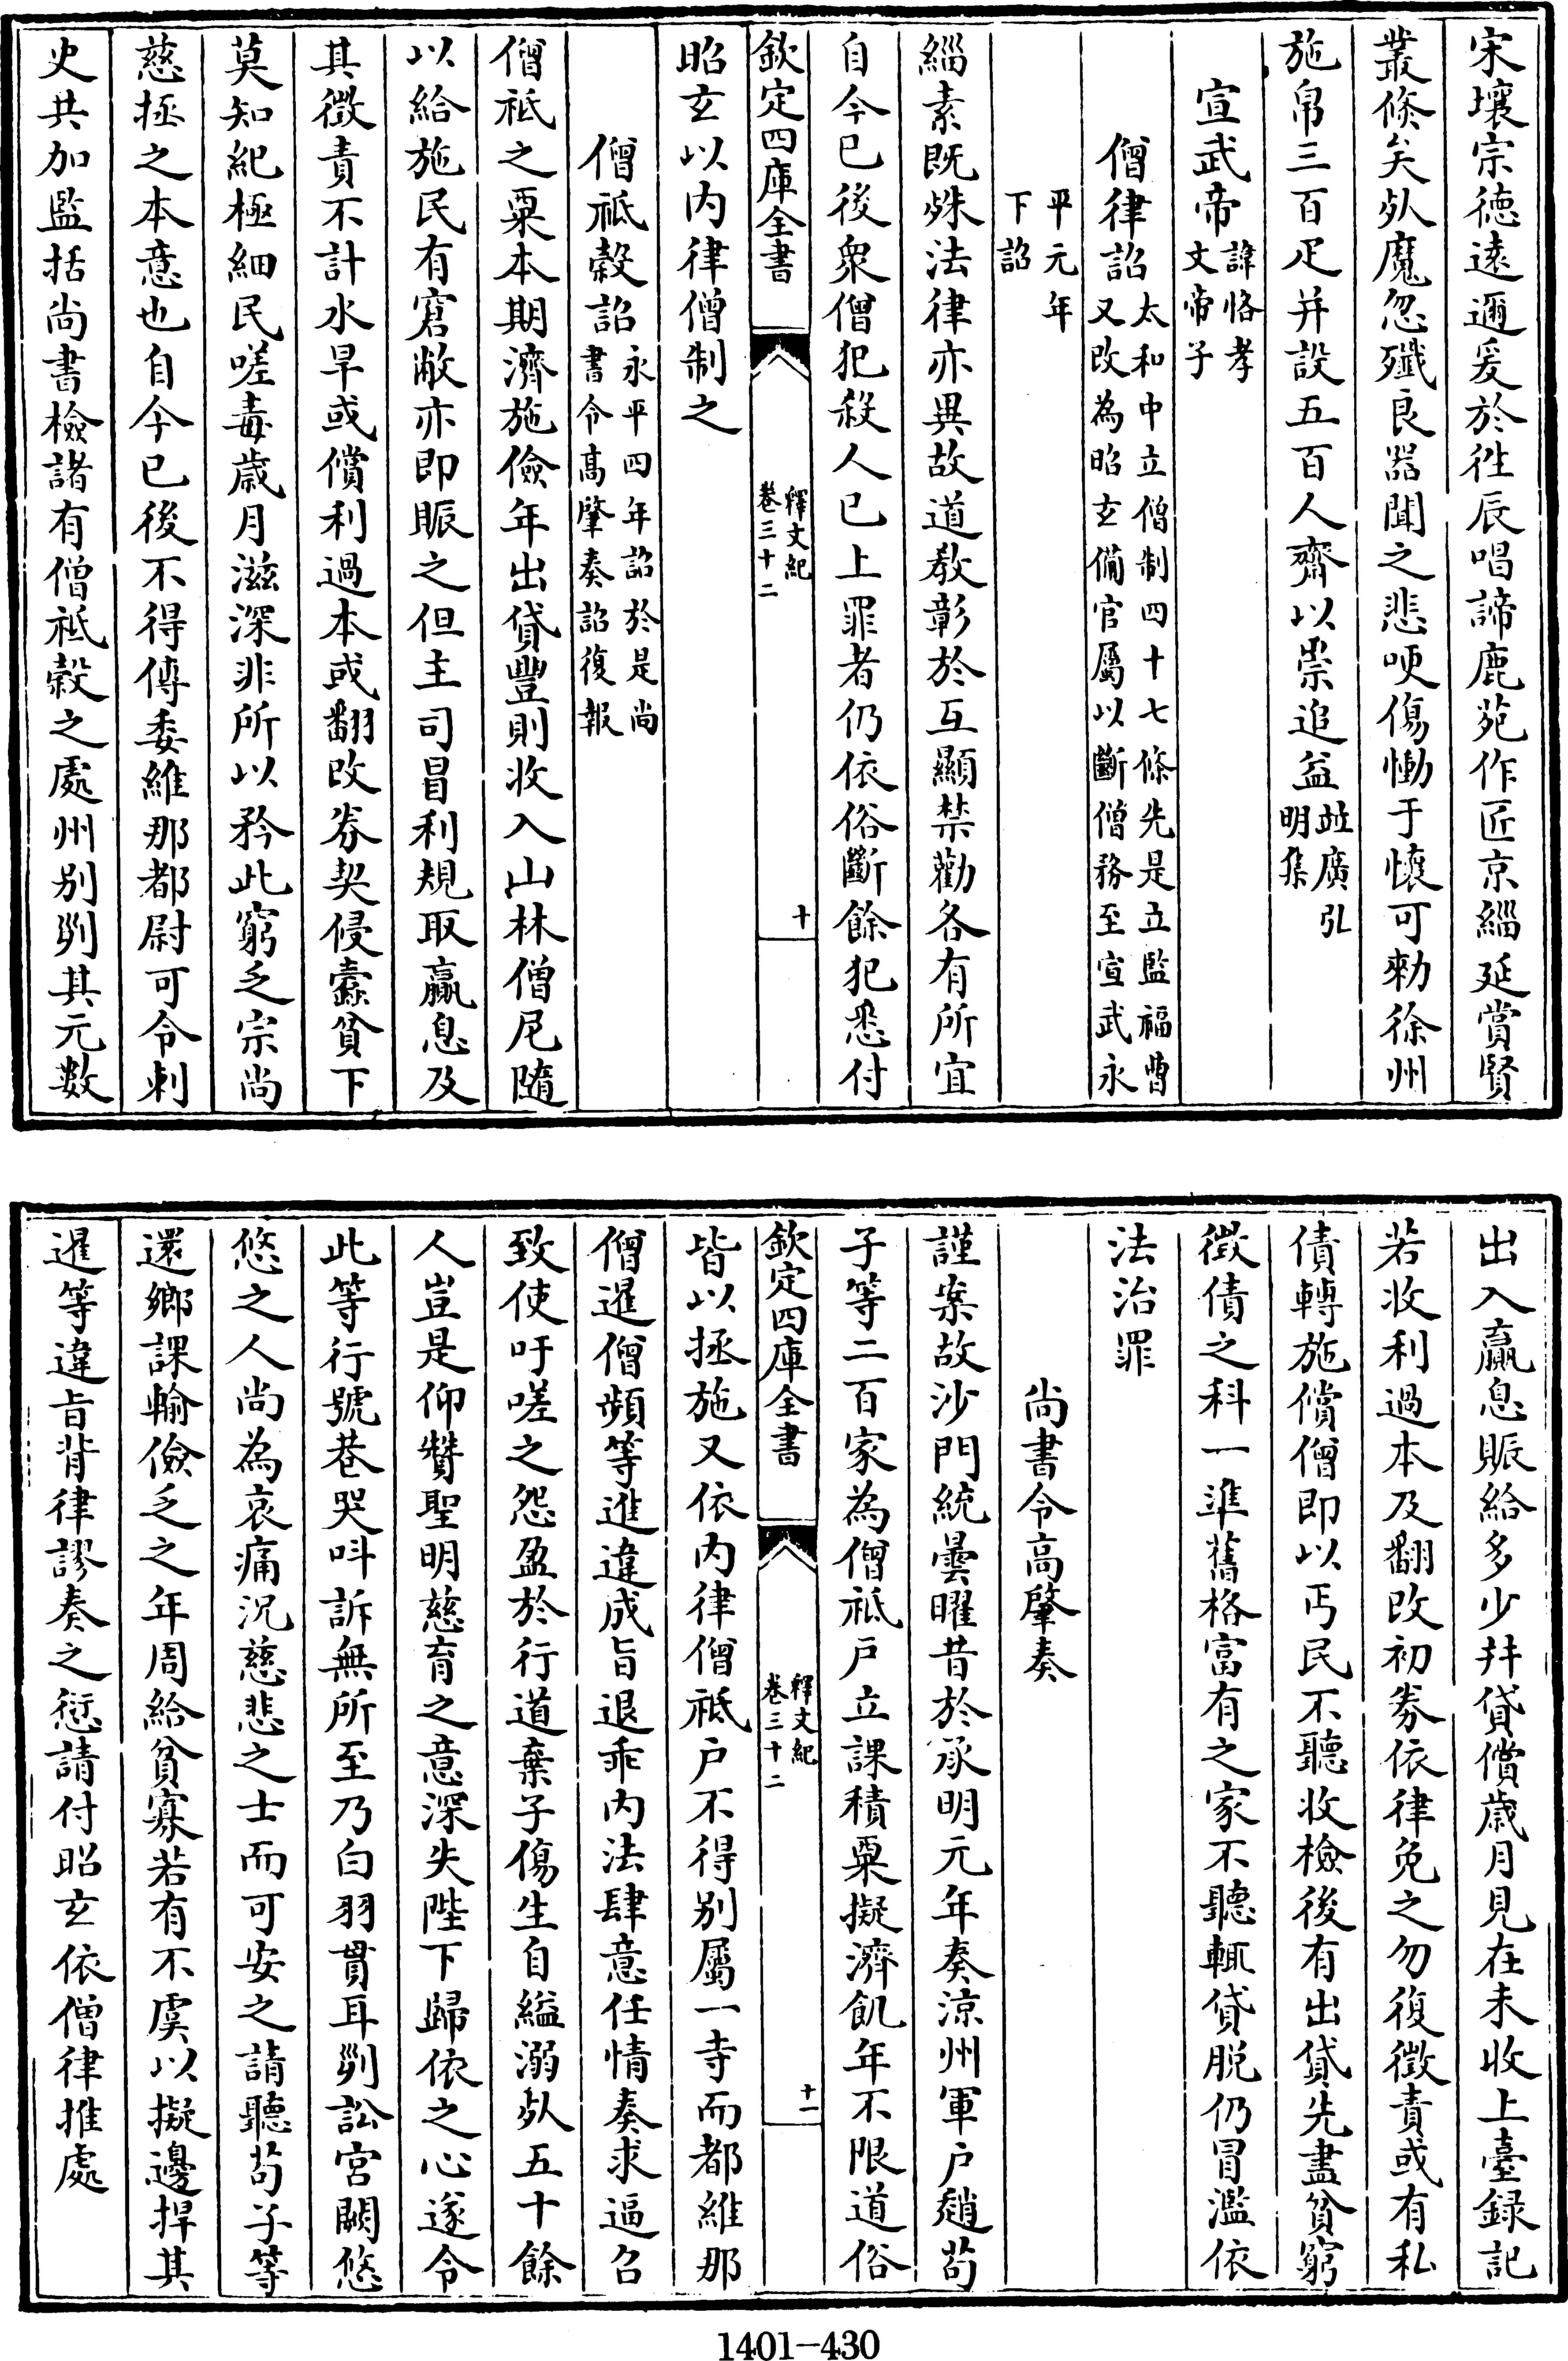 宋壤宗德遠邇爰於往辰唱諦鹿苑作匠京緇延賞賢
叢倏矣死魔忽殲良器聞之悲哽傷慟于懷可勑徐州
施帛三百疋并設五百人齋以崇追益並廣弘明集
宣武帝諱恪孝文帝子
僧律詔太和中立僧制四十七條先是立監福曹又改為昭玄備官屬以斷僧務至宣武永
平元年下詔
緇素既殊法律亦異故道教彰於互顯禁勸各有所宜
自今已後衆僧犯殺人已上罪者仍依俗斷餘犯悉付
欽定四庫全書 釋文紀卷三十二 十
昭玄以內律僧制之
僧祇穀詔永平四年詔於是尚書令高肇奏詔復報
僧祇之粟本期濟施儉年出貸豐則收入山林僧尼隨
以給施民有窘敝亦即賑之但主司冒利規取贏息及
其徵責不計水旱或償利過本或翻改券契侵蠹貧下
莫知紀極細民嗟毒歲月滋深非所以矜此窮乏宗尚
慈拯之本意也自今已後不得傳委維那都尉可令刺
史共加監括尚書檢諸有僧祇穀之處州別列其元數
出入贏息賑給多少并貸償歲月見在未收上臺録記
若收利過本及翻改初券依律免之勿復徵責或有私
債轉施償僧即以丐民不聽收檢後有出貸先盡貧窮
徵債之科一準舊格富有之家不聽輒貸脫仍冒濫依
法治罪
尚書令高肇奏
謹案故沙門統曇曜昔於承明元年奏涼州軍户趙苟
子等二百家為僧祇户立課積粟擬濟飢年不限道俗
欽定四庫全書 釋文紀卷三十二 十一
皆以拯施又依內律僧祇户不得別屬一寺而都維那
僧暹僧頻等進違成旨退乖內法肆意任情奏求逼召
致使吁嗟之怨盈於行道棄子傷生自縊溺死五十餘
人豈是仰贊聖明慈育之意深失陛下歸依之心遂令
此等行號巷哭叫訴無所至乃白羽貫耳列訟宮闕悠
悠之人尚為哀痛況慈悲之士而可安之請聽苟子等
還鄉課輸儉乏之年周給貧寡若有不虞以擬邊捍其
暹等違旨背律謬奏之愆請付昭玄依僧律推處
1401-430